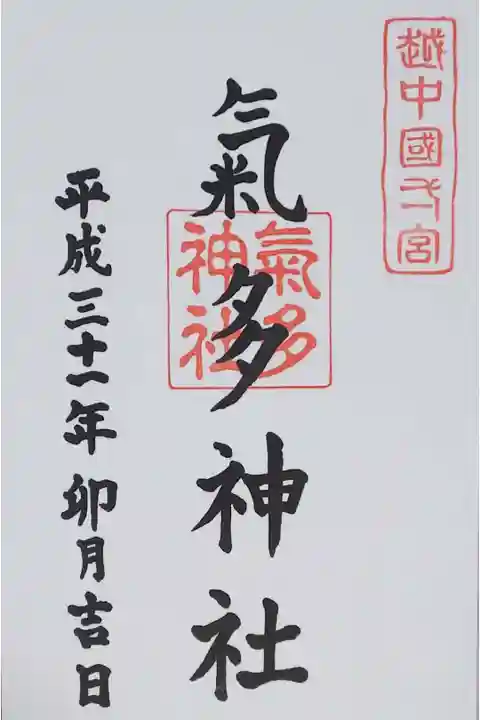 越中國弌宮
氣多神社
氣多
神社
平成三十一年卯月吉日